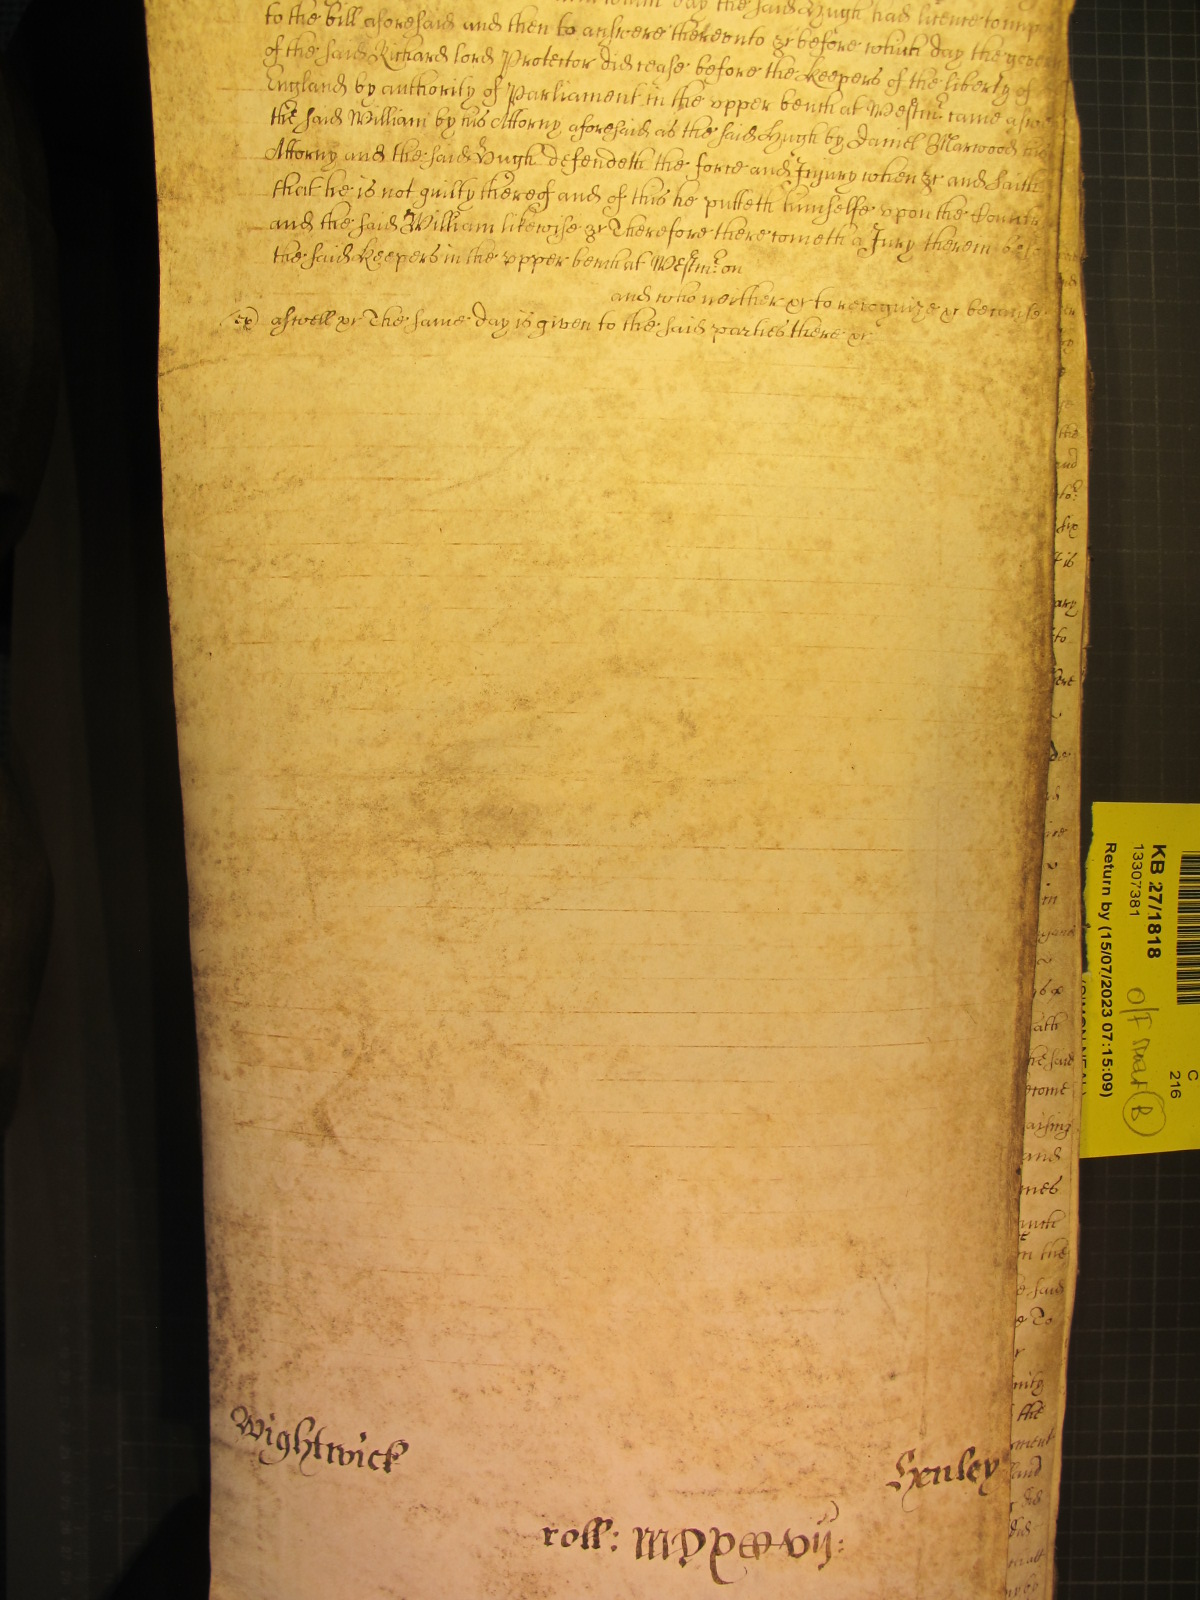 day the said Hugh had licence to imp
to the bill aforesaid and then to answere thereunto &c before which day the govern
of the said Richard lord Protector did cease before the keepers of the liberty of
England by authority of Parliament in the upper bench at Westm̃ came aswell
the said William by his Attorny aforesaid as the said Hugh by Daniel Marwood his
Attorny and the said Hugh defendeth the force and Injury when &c and saith
that he is not guilty thereof and of this he putteth himselfe upon the Countr
and the said William likewise &c Therefore there cometh a Jury therein bef
the said keepers in the upper bench at Westm̃: on
and who neither &c to recognize &c because
aswell &c The same day is given to the said parties there &c
Wightwick
Henley
roll:
KB 27/1818
13307381
Return by (15/07/2023 07:15:09)
C
216
B
(SIMON NEAL)
the
and
to:
six
ary
to
in
the said
come
aising
and
mes
in the
e said
To
the
ment